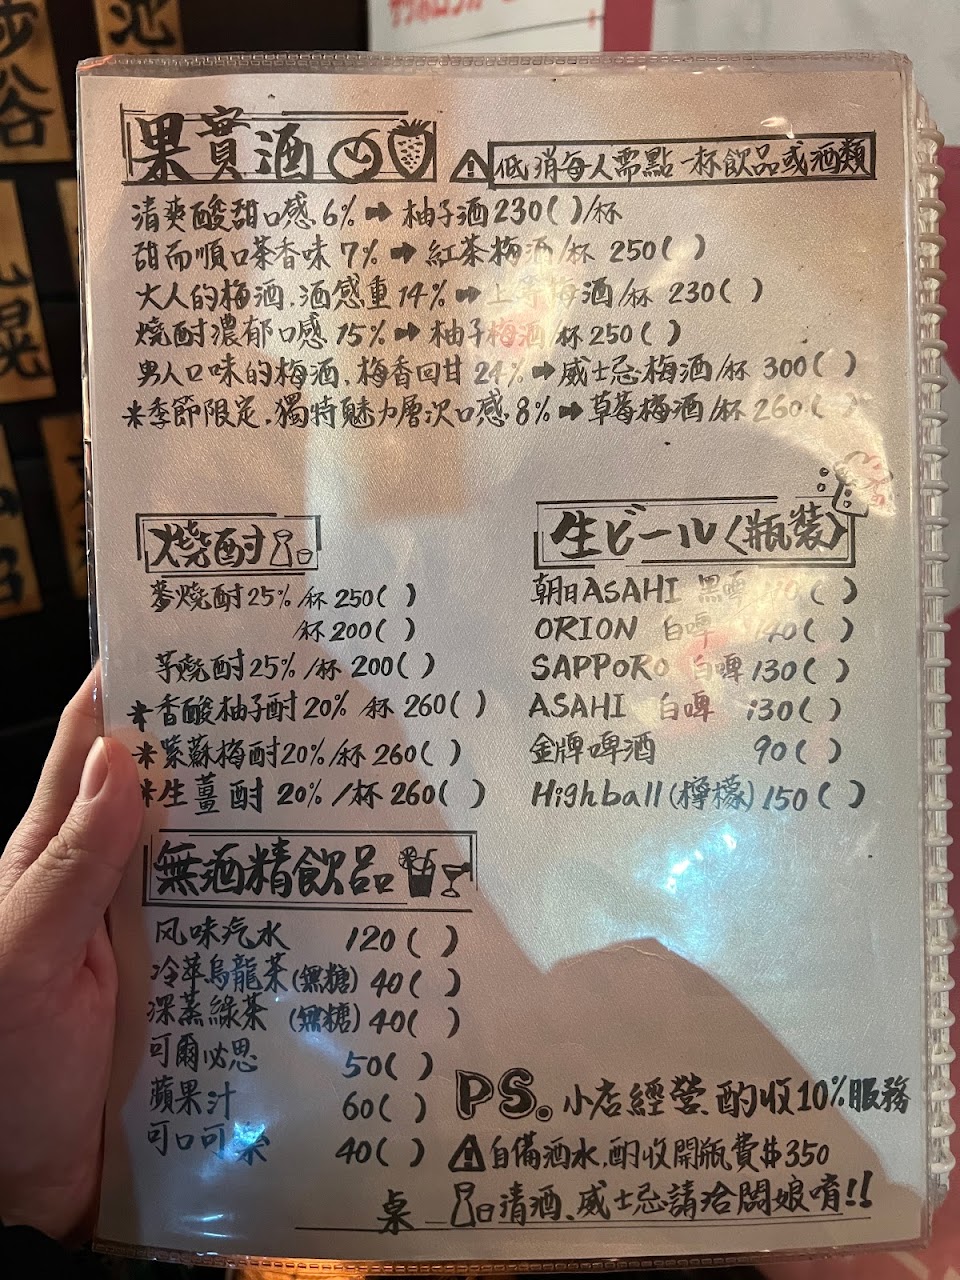 果實酒
低消每人需點一杯飲品或酒類
清爽酸甜口感 6% ➡ 柚子酒 230( )/杯
甜而順口茶香味 7% ➡ 紅茶梅酒/杯 250( )
大人的梅酒.酒感重 14% ➡ 上等梅酒/杯 230( )
燒酎濃郁口感 15% ➡ 柚子梅酒/杯 250( )
男人口味的梅酒.梅香回甘 24% ➡ 威士忌梅酒/杯 300( )
*季節限定.獨特魅力層次口感 8% ➡ 草莓梅酒/杯 260( )
燒酎
麥燒酎 25%/杯 250( )
/杯 200( )
芋燒酎 25%/杯 200( )
*香酸柚子酎 20% /杯 260( )
*紫蘇梅酎 20%/杯 260( )
*生薑酎 20%/杯 260( )
生ビール〈瓶裝〉
朝日ASAHI 黑啤 ( )
ORION 白啤 140( )
SAPPORO 白啤 130( )
ASAHI 白啤 130( )
金牌啤酒 90( )
Highball(檸檬) 150( )
無酒精飲品
风味汽水 120( )
冷萃烏龍茶(無糖) 40( )
深蒸綠茶(無糖) 40( )
可爾必思 50( )
蘋果汁 60( )
可口可樂 40( )
PS. 小店經營.酌收10%服務
自備酒水.酌收開瓶費$350
桌 清酒、威士忌請洽闆娘唷!!
札幌
池
谷